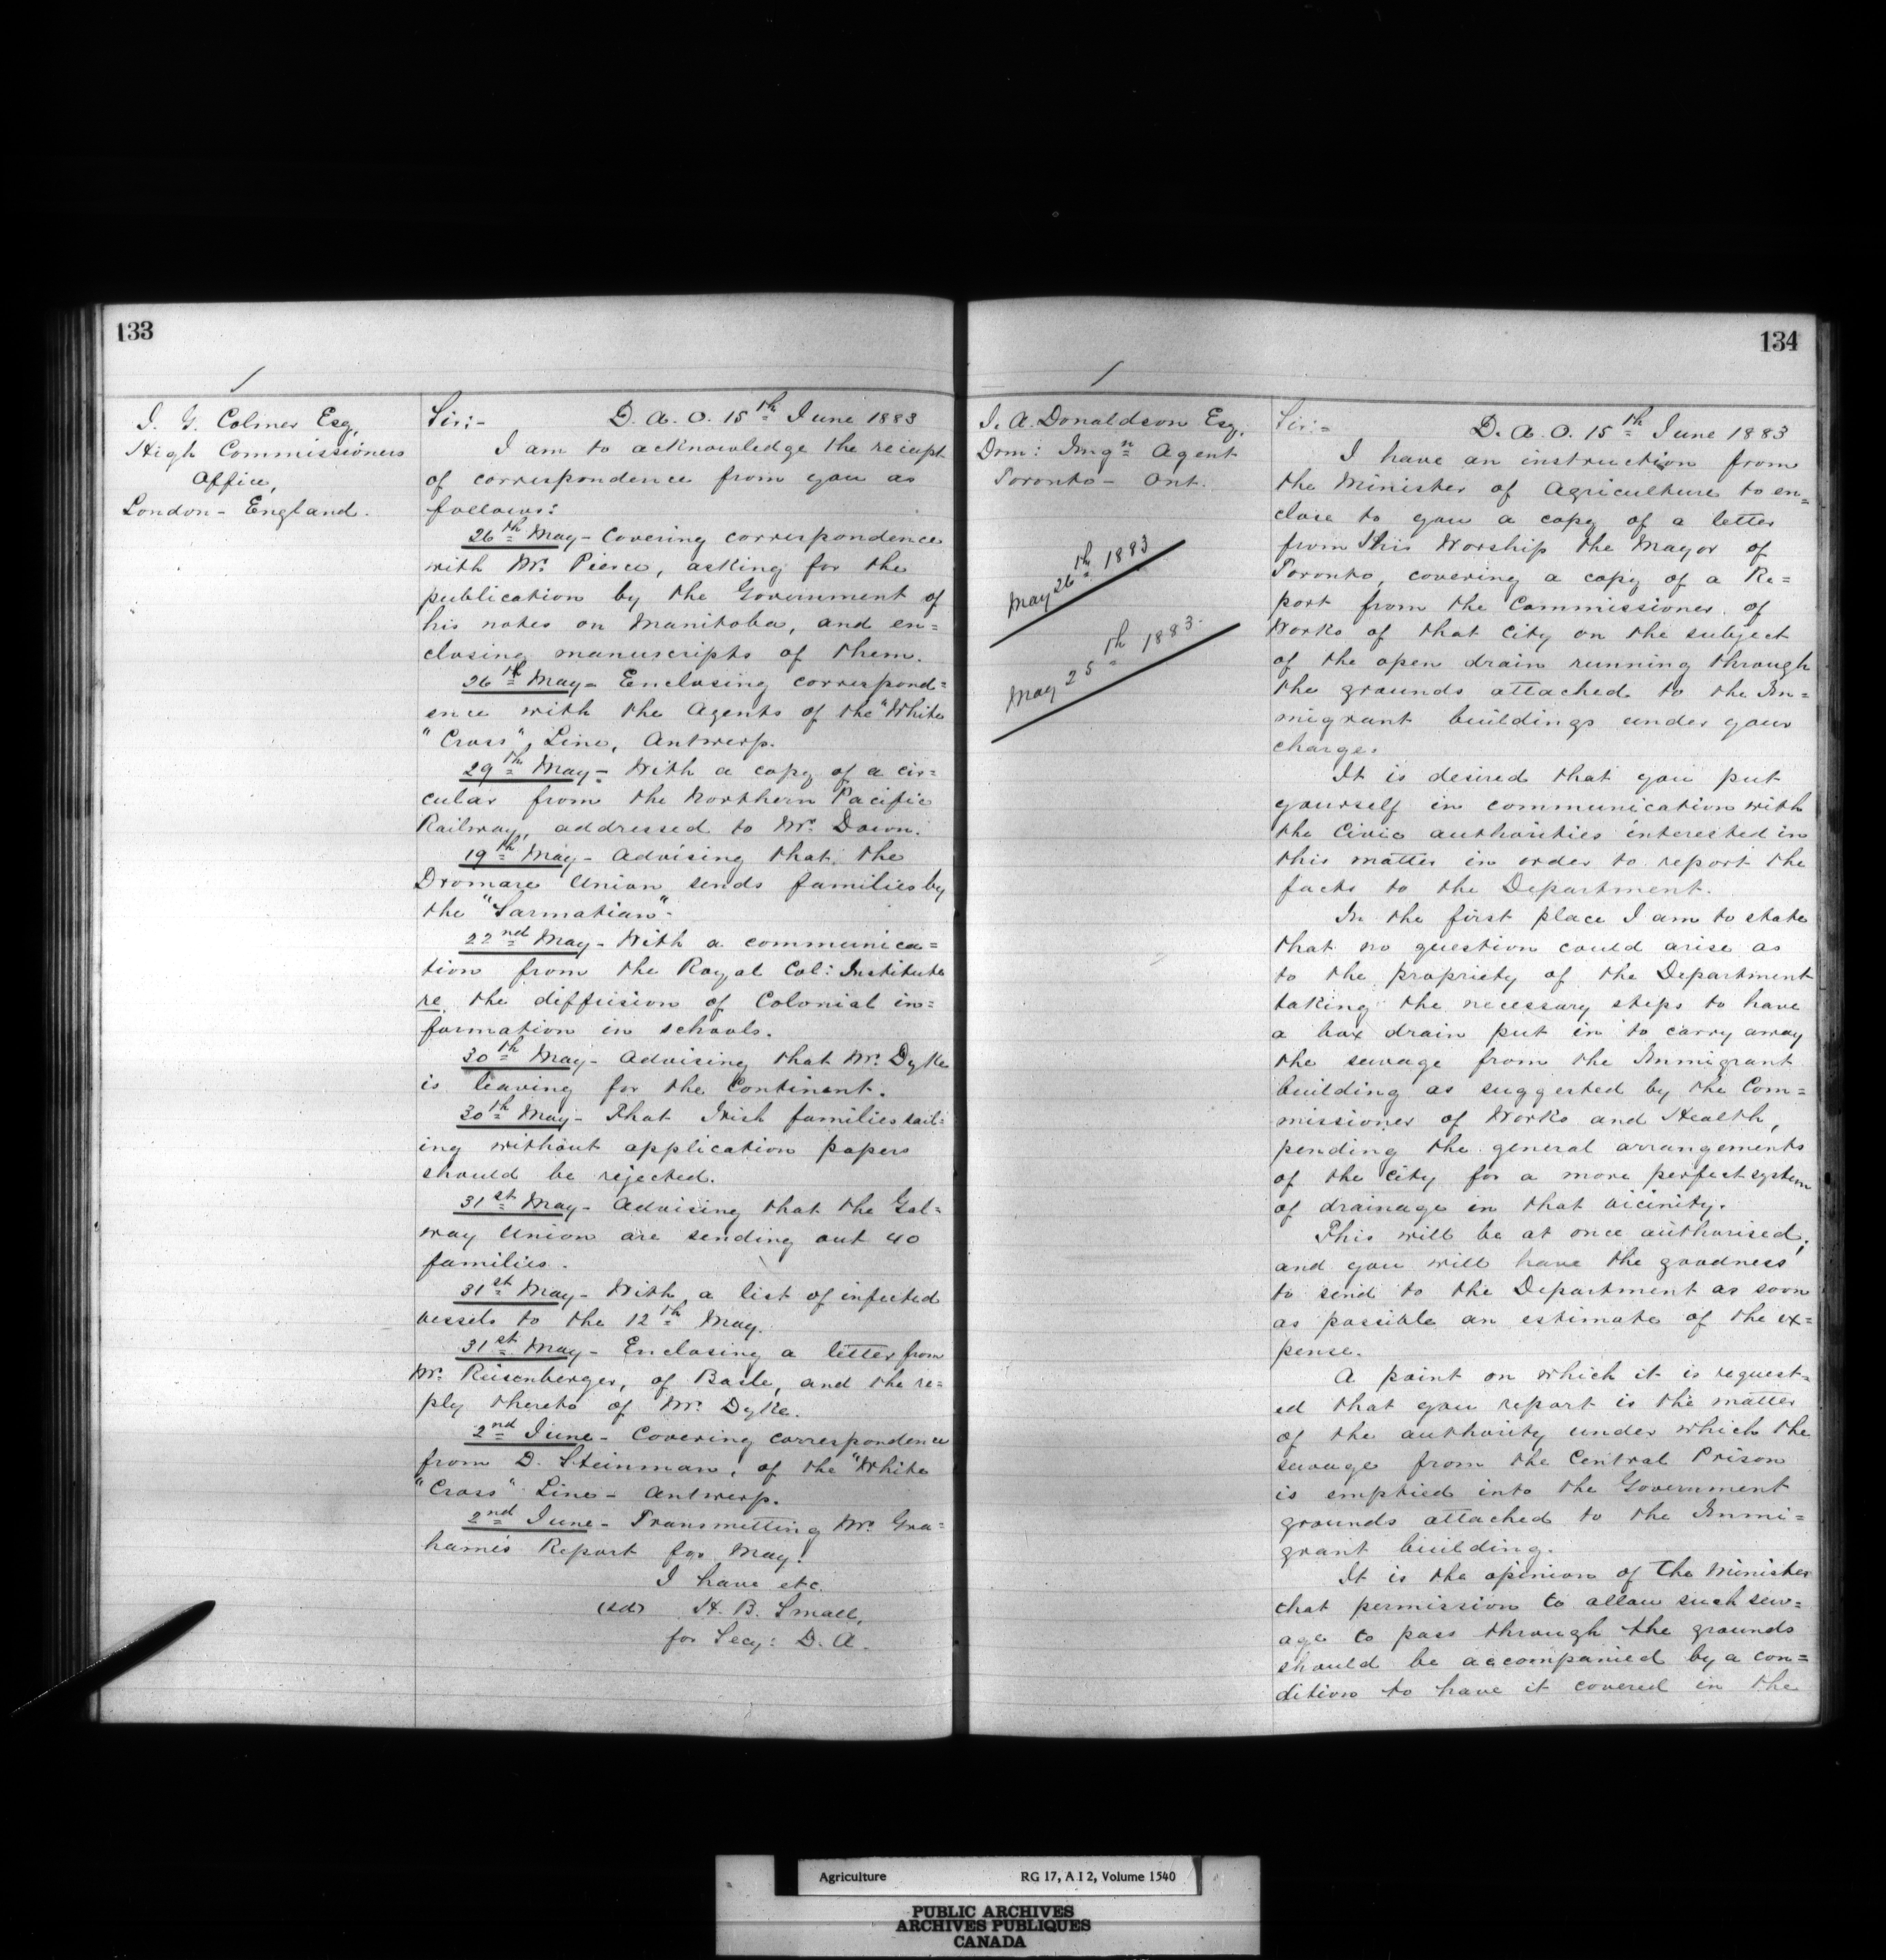 133
J. G. Colmer Esq,
High Commissioners
Office,
London - England.
Sir:- D. A. O. 15th June 1883
I am to acknowledge the reciept
of correspondence from you as
follows:
26th May - Covering correspondence
with Mr. Pierce, asking for the
publication by the Government of
his notes on Manitoba, and en=
closing manuscripts of them.
26th May - Enclosing correspond=
ence with the Agents of the "White
"Cross", Line, Antwerp.
29th May - With a copy of a cir=
cular from the Northern Pacific
Railway, addressed to Mr. Down.
19th May - Advising that the
Dromare Union sends families by
the "Sarmatian".
22nd May - With a communica=
tion from the Royal Col: Institute
re the diffusion of Colonial in=
formation in schools.
30th May - Advising that Mr. Dyke
is leaving for the Continent.
30th May - That Irish families sail=
ing without application papers
should be rejected.
31st May - Advising that the Gal=
way Union are sending out 40
families.
31st May - With a list of infected
vessels to the 12th May.
31st May - Enclosing a letter from
Mr. Riesenberger, of Basle, and the re=
ply thereto of Mr. Dyke.
2nd June - Covering correspondence
from D. Steinman, of the "White
"Cross" Line - Antwerp.
2nd June - Transmitting Mr. Gra=
hame's Report for May.
I have etc.
(sd) H. B. Small,
for Secy: D. A.
134
J. A. Donaldson Esq.
Dom: Imgn Agent
Toronto - Ont.
May 26th 1883
May 25th 1883.
Sir:= D. A. O. 15th June 1883
I have an instruction from
the Minister of Agriculture to en=
close to you a copy of a letter
from His Worship the Mayor of
Toronto, covering a copy of a Re=
port from the Commissioner of
Works of that City on the subject
of the open drain running through
the grounds attached to the Im=
migrant buildings under your
charge.
It is desired that you put
yourself in communication with
the Civic authorities interested in
this matter in order to report the
facts to the Department.
In the first place I am to state
that no question could arise as
to the propriety of the Department
taking the necessary steps to have
a box drain put in to carry away
the sewage from the Immigrant
building as suggested by the Com=
missioner of Works and Health,
pending the general arrangements
of the City for a more perfect system
of drainage in that vicinity.
This will be at once authorised;
and you will have the goodness
to send to the Department as soon
as possible an estimate of the ex=
pense.
A point on which it is request=
ed that you report is the matter
of the authority under which the
sewage from the Central Prison
is emptied into the Government
grounds attached to the Immi=
grant building.
It is the opinion of the Minister
that permission to allow such sew=
age to pass through the grounds
should be accompanied by a con=
dition to have it covered in the
Agriculture RG 17, A I 2, Volume 1540
PUBLIC ARCHIVES
ARCHIVES PUBLIQUES
CANADA